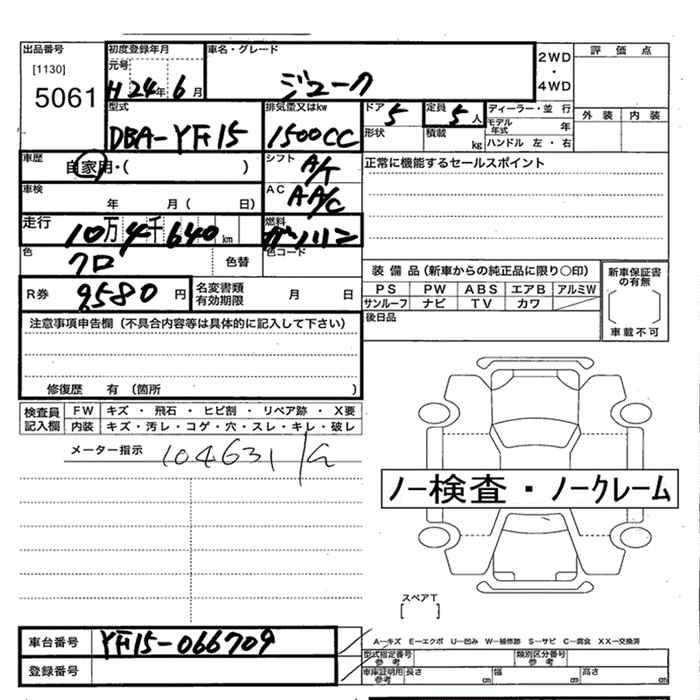 出品番号 初度登録年月 車名・グレード 2WD 評価点
[1130] 元号 ・
5061 H24年6月 ジューク 4WD
型式 排気量又はkw ドア 定員 ディーラー・並行 外装 内装
DBA-YF15 1500CC 5 5人 モデル年式 年
形状 積載 kg ハンドル 左・右
車歴 自家用・( ) シフト A/T 正常に機能するセールスポイント
車検 年 月( 日) AC AA/C
走行 10万4千640km 燃料 ガソリン
色 クロ 色替 色コード
装備品(新車からの純正品に限り〇印) 新車保証書の有無
R券 9,580円 名変書類有効期限 月 日 PS PW ABS エアB アルミW
サンルーフ ナビ TV カワ
注意事項申告欄(不具合内容等は具体的に記入して下さい) 後日品 車載不可
修復歴 有(箇所 )
検査員記入欄 FW キズ・飛石・ヒビ割・リペア跡・X要
内装 キズ・汚レ・コゲ・穴・スレ・キレ・破レ
メーター指示 104631
ノー検査・ノークレーム
スペアT
[ ]
車台番号 YF15-066709 A―キズ E―エクボ U―凹み W―補修跡 S―サビ C―腐食 XX―交換済
型式指定番号 参考 類別区分番号 参考
登録番号 車庫証明用 参考 長さ cm 幅 cm 高さ cm